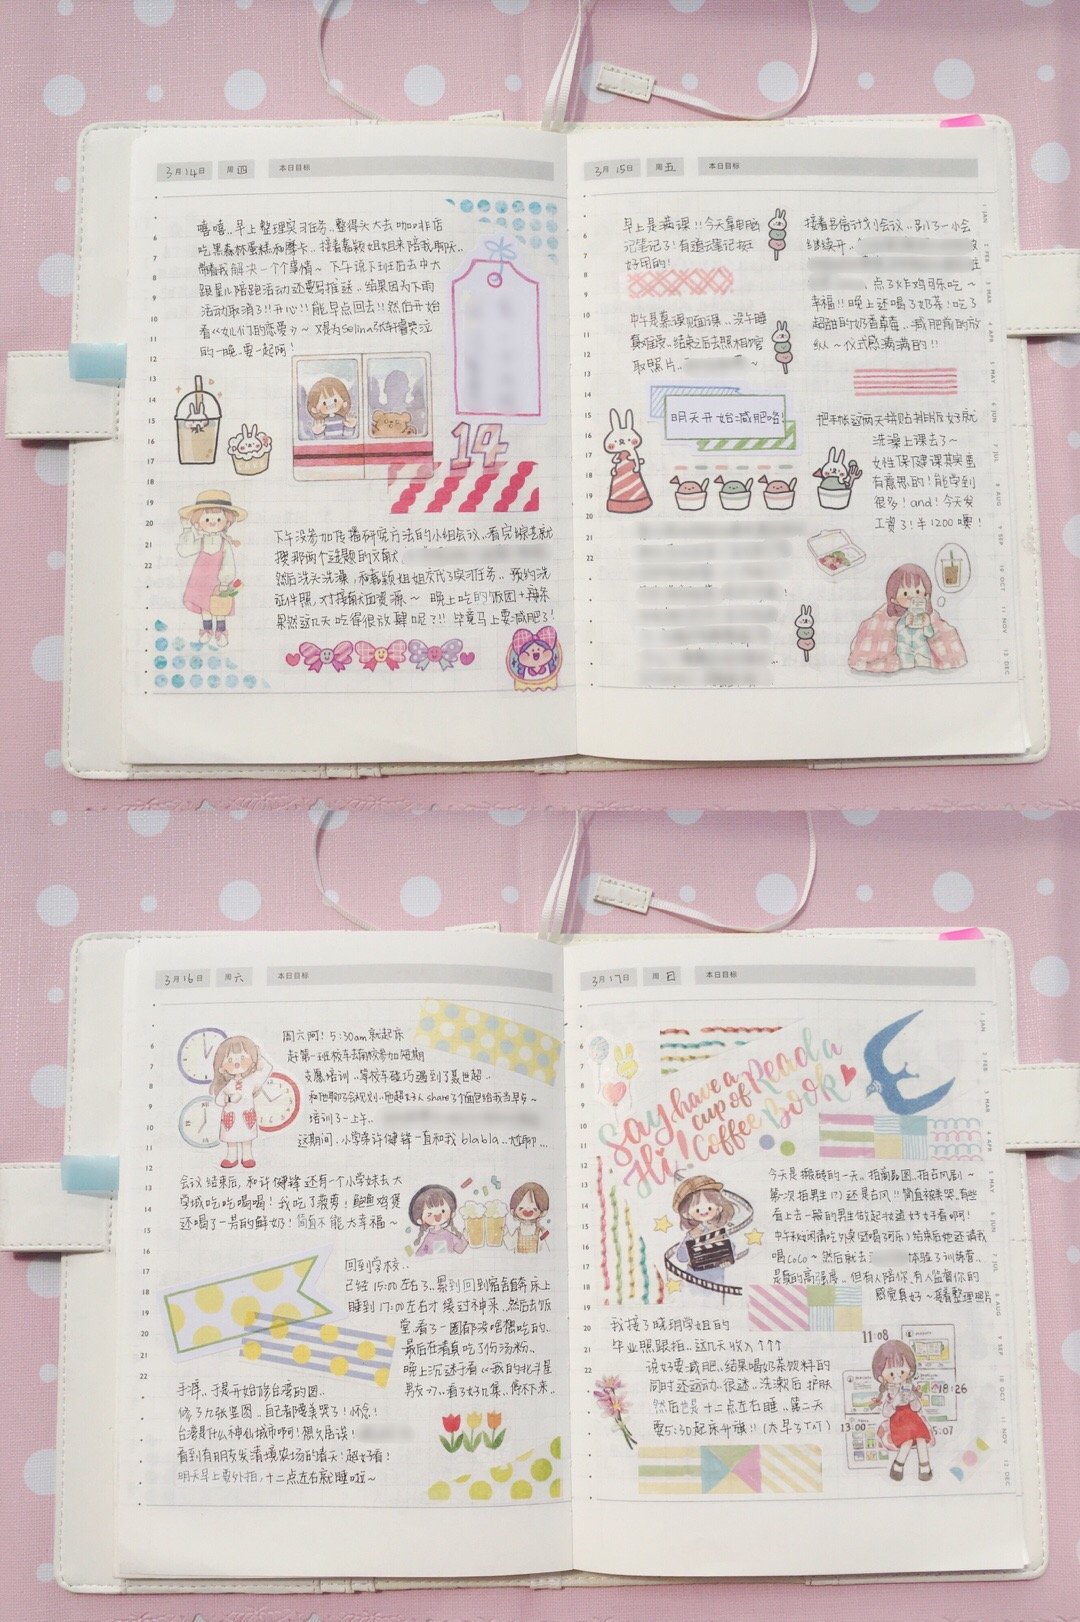 3月14日 周四 本日目标
嘻嘻..早上整理实习任务..整得头大去咖啡店
吃黑森林蛋糕和摩卡..接着嘉颖姐姐来陪我聊天..
带着我解决一个个事情~ 下午说下班后去中大
跟星儿陪跑活动还要写推送..结果因为下雨
活动取消了!!开心!!能早点回去!!然后开始
看《女儿们的恋爱》~ 又是为Selina张轩睿哭泣
的一晚..要一起阿!
14
下午没参加传播研究方法的小组会议..看完综艺就
搜那两个选题的文献
然后洗头洗澡,和嘉颖姐姐交代了实习任务..预约洗
证件照,对接前天面资源~ 晚上吃的饭团+辣条
果然这几天吃得很放肆呢?!! 毕竟马上要减肥了!
3月15日 周五 本日目标
早上是满课!!今天拿电脑
记笔记了!有道云笔记挺
好用的!
中午是慕课见面课..没午睡
真难受..结束之后去照相馆
取照片.. ~
明天开始减肥咯!
接着书信计划会议..别了一小会
继续开..
点了炸鸡可乐吃~
幸福!!晚上还喝了奶茶!吃了
超甜的奶香草莓..减肥前的放
纵~仪式感满满的!!
把手帐这两天拼贴排版好就
洗澡上课去了~
女性保健课其实蛮
有意思的!能学到
很多!and!今天发
工资了!半1200噢!
3月16日 周六 本日目标
周六阿! 5:30am就起床
赶第一班校车去南校参加短期
支愿培训..等校车碰巧遇到了聂世超..
和他聊了会规划..他超好人share了个面包给我当早餐~
培训了一上午..
这期间,小学弟许健锋一直和我blabla..尬聊...
会议结束后,和许健锋还有一个小学妹去大
学城吃吃喝喝!我吃了菠萝!鲍鱼鸡煲
还喝了一号的鲜奶!简直不能太幸福~
回到学校..
已经15:00左右了..累到回到宿舍直奔床上
睡到17:00左右才缓过神来..然后去饭
堂..看了一圈都没啥想吃的..
最后在清真吃了份汤粉..
晚上沉迷于看《我的北斗星
男友》..看了好几集..停不下来..
于是开始修台湾的图..
修了九张竖图..自己都要美哭了!怀念!
台湾是什么神仙城市啊!想久居诶!
看到有朋友发清境农场的春天!超好看!
明天早上要外拍,十二点左右就睡啦~
3月17日 周日 本日目标
Say Hi!
have a cup of Coffee
Read a Book
今天是搬砖的一天..拍商品图..拍古风剧~
第一次拍男生(?)还是古风!!简直被美哭..有些
看上去一般的男生做起妆造好好看啊啊!
中午秋闲请吃外卖(还喝了可乐)结束后他还请我
喝coco~ 然后就去 体验了训练营..
是真的高强度..但有人陪伴,有人监督你的
感觉真好~接着整理照片
我接了晓玥学姐的
毕业照跟拍..这几天收入↑↑↑
说好要减肥..结果喝奶茶饮料的
同时还运动..很迷..洗漱后护肤
然后也是十二点左右睡..第二天
要5:30起床升旗!!(太早了TAT)
11:08
18:26
13:00
15:07